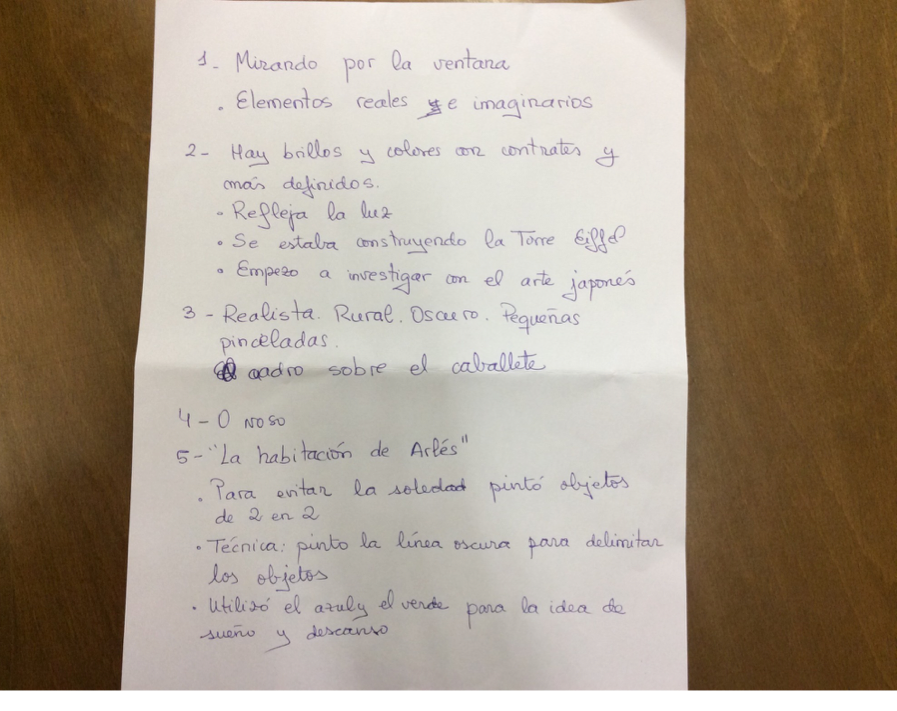 1- Mirando por la ventana
. Elementos reales e imaginarios
2- Hay brillos y colores con contrates y
más definidos.
• Refleja la luz
• Se estaba construyendo la Torre Eiffel
• Empezo a investigar con el arte japonés
3 - Realista. Rural. Oscuro. Pequeñas
pinceladas.
cuadro sobre el caballete
4 - O noso
5- "La habitación de Arlés"
. Para evitar la soledad pintó objetos
de 2 en 2
• Técnica: pinto la línea oscura para delimitar
los objetos
• Utilizó el azul y el verde para la idea de
sueño y descanso